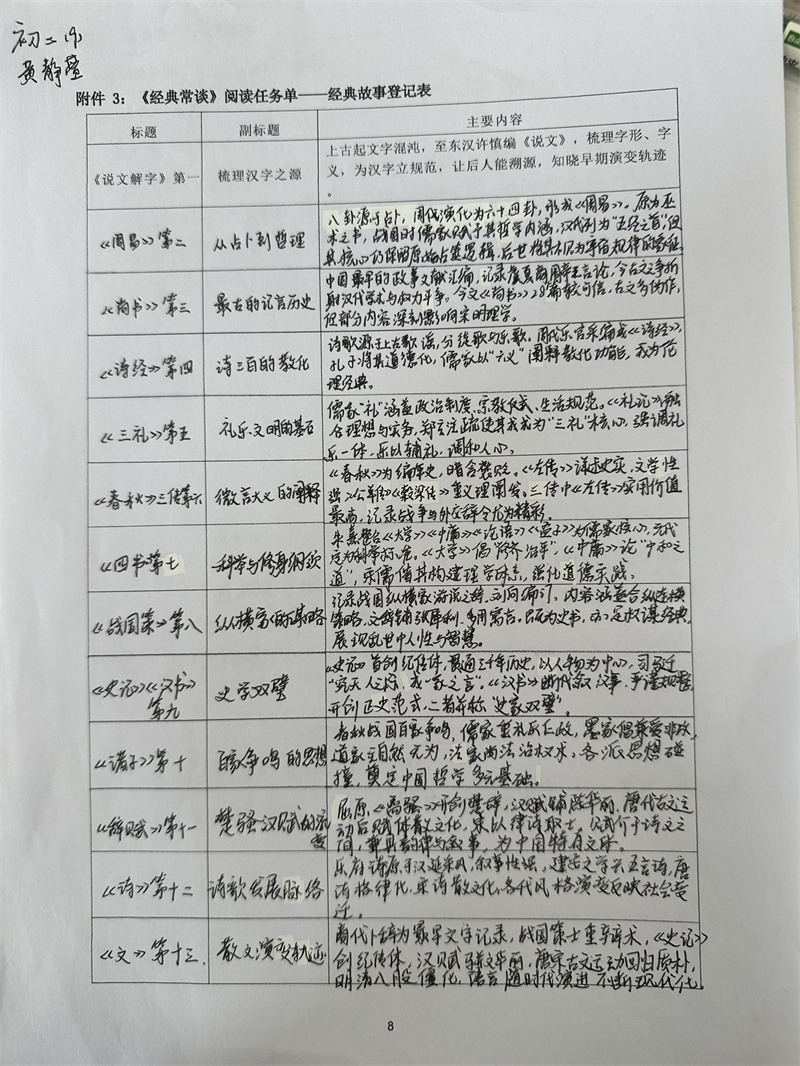 初二19
黄静莹
附件 3：《经典常谈》阅读任务单——经典故事登记表
标题 副标题 主要内容
《说文解字》第一 梳理汉字之源
上古起文字混沌，至东汉许慎编《说文》，梳理字形、字
义，为汉字立规范，让后人能溯源，知晓早期演变轨迹
。
《周易》第二 从占卜到哲理
八卦源于占卜，周代演化为六十四卦，形成《周易》。原为巫
术之书，战国时儒家赋予其哲学内涵，汉代列为"五经之首"，但
其核心仍保留原始占筮逻辑，后世将其视为宇宙规律的象征
《尚书》第三 最古的记言历史
中国最早的政事文献汇编，记录虞夏商周帝王言论，今古文之争折
射汉代学术与权力斗争。今文《尚书》28篇较可信，古文多伪作，
但部分内容深刻影响宋明理学。
《诗经》第四 诗三百的教化
诗歌源于上古歌谣，分徒歌与乐歌。周代乐官采编成《诗经》，
孔子将其道德化，儒家以"六义"阐释教化功能，成为伦
理经典。
《三礼》第五 礼乐文明的基石
儒家"礼"涵盖政治制度、宗教仪式、生活规范。《礼记》融
合理想与实务，郑玄注疏使其成为"三礼"核心，强调礼
乐一体，乐以辅礼，调和人心。
《春秋》三传第六 微言大义的阐释
《春秋》为编年史，暗含褒贬。《左传》详述史实，文学性
强，《公羊传》《穀梁传》重义理阐发。三传中《左传》实用价值
最高，记录战争与外交辞令尤为精彩。
《四书》第七 科举与修身纲领
朱熹整合《大学》《中庸》《论语》《孟子》为儒家核心，元代
定为科举标准。《大学》倡"修齐治平"，《中庸》论"中和之
道"，宋儒借其构建理学体系，强化道德实践。
《战国策》第八 纵横家的谋略
记录战国纵横家游说之辞，刘向编订，内容涵盖合纵连横
策略，文辞铺张犀利，多用寓言。既为史书，亦是权谋经典，
展现乱世中人性与智慧。
《史记》《汉书》
第九 史学双璧
《史记》首创纪传体，贯通三千年历史，以人物为中心，司马迁
"究天人之际，成一家之言"。《汉书》断代叙汉事，严谨规整，
开创正史范式，二者并称"史家双璧"。
《诸子》第十 百家争鸣的思想
春秋战国百家争鸣，儒家重礼乐仁政，墨家倡兼爱非攻，
道家主自然无为，法家尚法治权术，各派思想碰
撞，奠定中国哲学多元基础。
《辞赋》第十一 楚骚汉赋的流
变
屈原《离骚》开创楚辞，汉赋铺陈华丽，唐代古文运
动后赋体散文化，宋以律诗取士。赋介于诗文之
间，兼具韵律与叙事，为中国特有文体。
《诗》第十二 诗歌发展脉络
乐府诗源于汉廷采风，叙事性强，建安文学兴五言诗，唐
诗格律化，宋诗散文化，各代风格演变反映社会变
迁。
《文》第十三. 散文演变轨迹
商代卜辞为最早文字记录，战国策士重辩术，《史记》
创纪传体，汉赋骈文华丽，唐宋古文运动回归质朴，
明清八股僵化，语言随时代演进不断现代化。
8